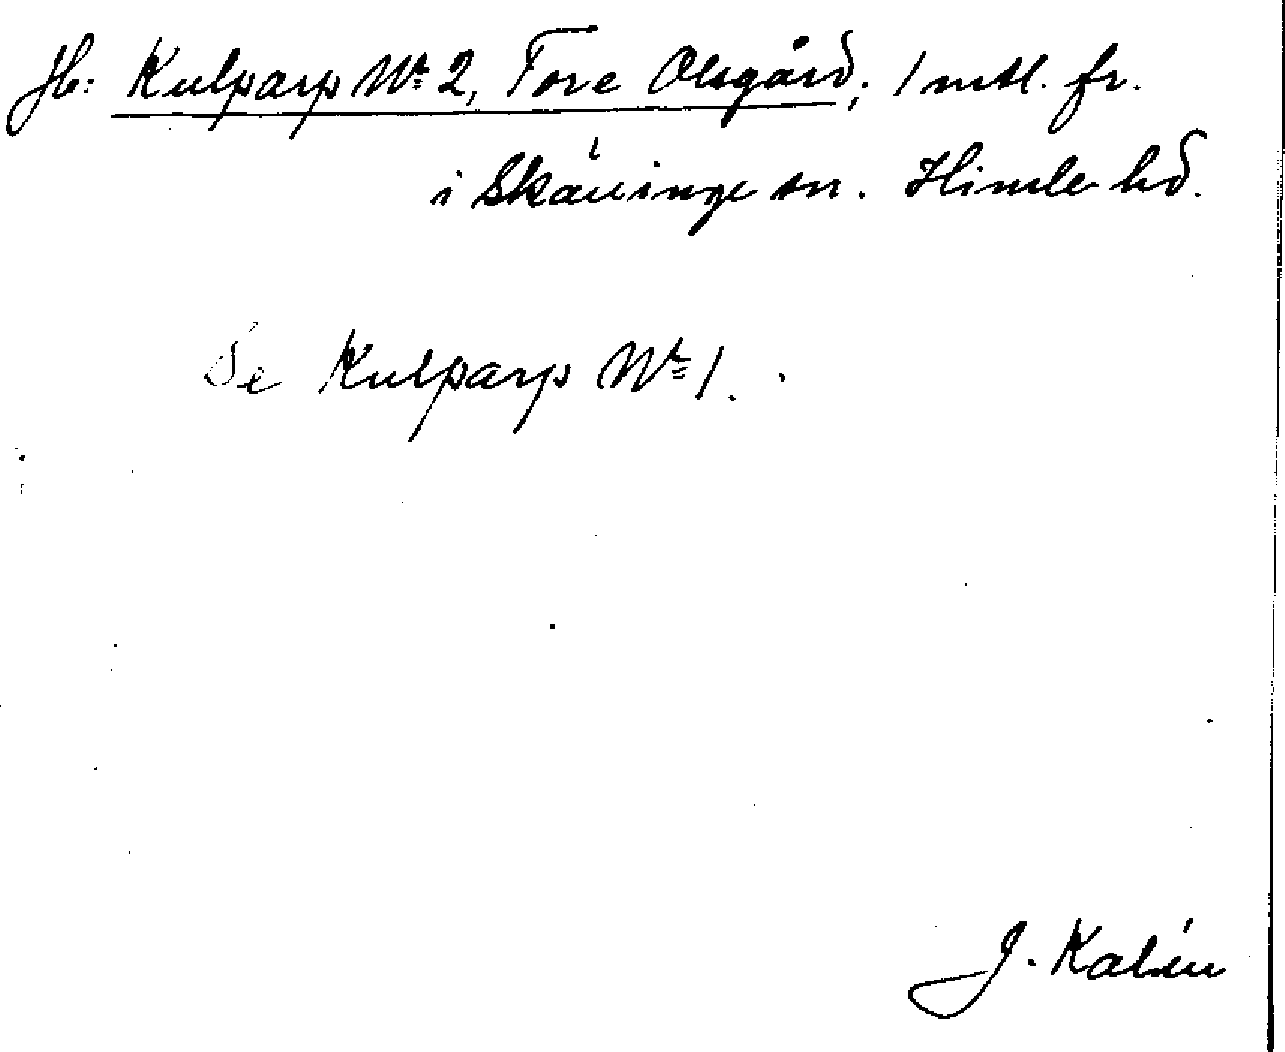 Jb: Kulparp Nr 2, Tore Olsgård; 1 mtl. fr.
i Skällinge sn. Himle hd.
Se Kulparp Nr 1.
J. Kalén